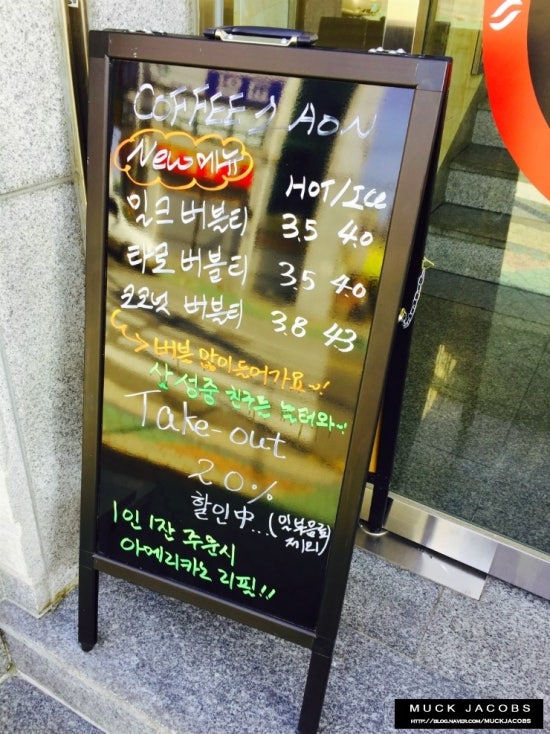 COFFEE 2 AON
New 메뉴
HOT/Ice
밀크 버블티 3.5 4.0
타로 버블티 3.5 4.0
코코넛 버블티 3.8 4.3
버블 많이 들어가요~!
삼성중 친구들 놀터와~!
Take-out
20%
할인中...(일부음료 제외)
1인 1잔 주문시
아메리카노 리필!!
MUCK JACOBS
HTTP://BLOG.NAVER.COM/MUCKJACOBS